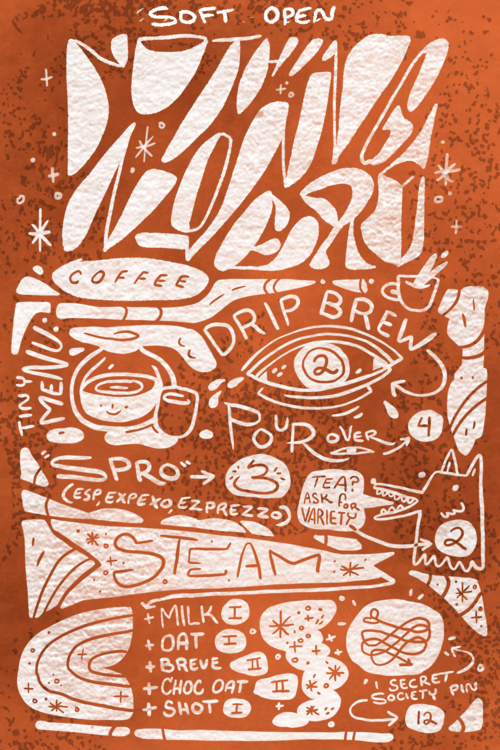 SOFT OPEN
NOTHING
COFFEE
TINY
MENU:
DRIP BREW
2
POUR OVER
4
"SPRO"
3
(ESP, EXPEXO, EZPREZZO)
TEA?
ASK FOR
VARIETY
2
STEAM
+ MILK I
+ OAT I
+ BREVE II
+ CHOC OAT II
+ SHOT I
1 SECRET
SOCIETY PIN
12